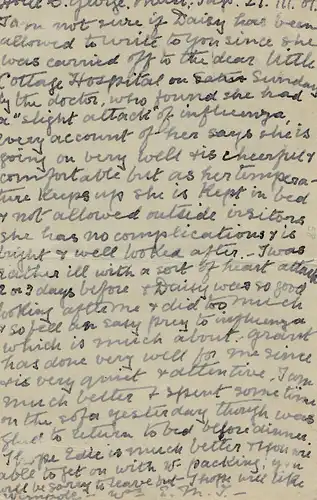 I am not sure if Daisy has been
allowed to write to you since she
was carried off to the dear little
Cottage Hospital on Sunday
by the doctor, who found she had
a "slight attack" of influenza,
every account of her says she is
going on very well & is cheerful &
comfortable but as her tempera-
ture keeps up she is kept in bed
& not allowed outside visitors
she has no complications & is
bright & well looked after. I was
rather ill with a sort of heart attack
2 or 3 days before & Daisy was so good
looking after me & did too much
& so fell an easy prey to influenza
which is much about. Grant
has done very well for me since
& is very quiet & attentive. I am
much better & spent some time
on the sofa yesterday though was
glad to return to bed before dinner.
I hope Edie is much better & you are
able to get on with yr packing, you
will be sorry to leave but I hope will like